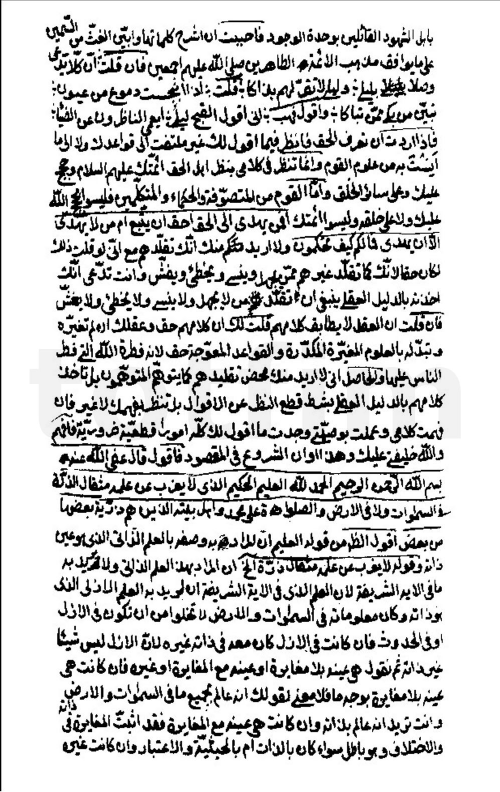 باهل الشهود القائلين بوحدة الوجود فاحببت ان اشرح كلماتها وابين الغث من السمين
على ما يوافق مذهب الائمة الطاهرين صلى الله عليهم اجمعين فان قلت ان كلا يدعى
وصلا بليلى وليلى لا تقر لهم بذاكا قلت اذا انبجست دموع من عيون
تبين من بكى ممن تباكا واقول
فاذا اردت ان تعرف الحق فانظر فيما اقول لك غير ملتفت الى قواعدك ولا الى ما
أنست به من علوم القوم وانما تنظر فى كلامى بنظر اهل الحق ائمتك عليهم السلام وحجج
عليك وعلى سائر الخلق واما القوم من المتصوفة والحكماء والمتكلمين فليسوا حجج الله
عليك ولا على خلقه وليسوا ائمتك افمن يهدى الى الحق احق ان يتبع ام من لا يهدى
الا ان يهدى فمالكم كيف تحكمون ولا اريد منك انك تقلدهم مع انى لو قلت ذلك
لكان حقا لانك كما تقلد غيرهم ممن يجهل وينسى ويخطئ ويغش وانت تدعى انك
اخذته بالدليل العقلى ينبغى ان تقلد من لا يجهل ولا ينسى ولا يخطئ ولا يغش
فان قلت ان العقل لا يطابق كلامهم قلت لك ان كلامهم حق وعقلك اذا لم تغيره
وتبدله بالعلوم المغيرة المكدرة والقواعد المعوجة حق لانه فطرة الله التى فطر
الناس عليها والحاصل انى لا اريد منك محض تقليدهم كما يتوهم المتوهمون بل تأخذ
كلامهم بالدليل العقلى بشرط قطع النظر عن الاقوال بل تنظر بفهمك لا غير فان
فهمت كلامى وعملت بوصيتى وجدت ما اقول لك كله امورا قطعية ضرورية فافهم
والله خليفتى عليك وهذا اوان الشروع فى المقصود فاقول قال عفى الله عنه
بسم الله الرحمن الرحيم الحمد لله العليم الحكيم الذى لا يعزب عن علمه مثقال الذرة
فى السموات ولا فى الارض والصلوة على محمد واهل بيته الذين هم ذرية بعضها
من بعض اقول الظاهر من قوله العليم ان المراد به وصفه بالعلم الذاتى الذى هو عين
ذاته وقوله لا يعزب عن علمه مثقال ذرة الخ ان المراد بهذا العلم الذاتى ولا يريد به
ما فى الاية الشريفة لان العلم الذى فى الاية الشريفة ان اريد به العلم الازلى الذى
هو ذاته وكان معلوماته فى السموات والارض لا تخلوا من ان تكون فى الازل
او فى الحدوث فان كانت فى الازل كان معه فى ذاته غيره لان الازل ليس شيئا
غير ذاته ثم نقول هى عينه بلا مغايرة او عينه مع المغايرة او غيره فان كانت هى
عينه بلا مغايرة بوجه ما فلا معنى لقولك انه عالم بجميع ما فى السموات والارض
وانت تريد انه عالم بذاته وان كانت هى عينه مع المغايرة فقد اثبت المغايرة فى ذاته
والاختلاف وهو باطل سواء كان بالذات ام بالحيثية والاعتبار وان كانت غيره